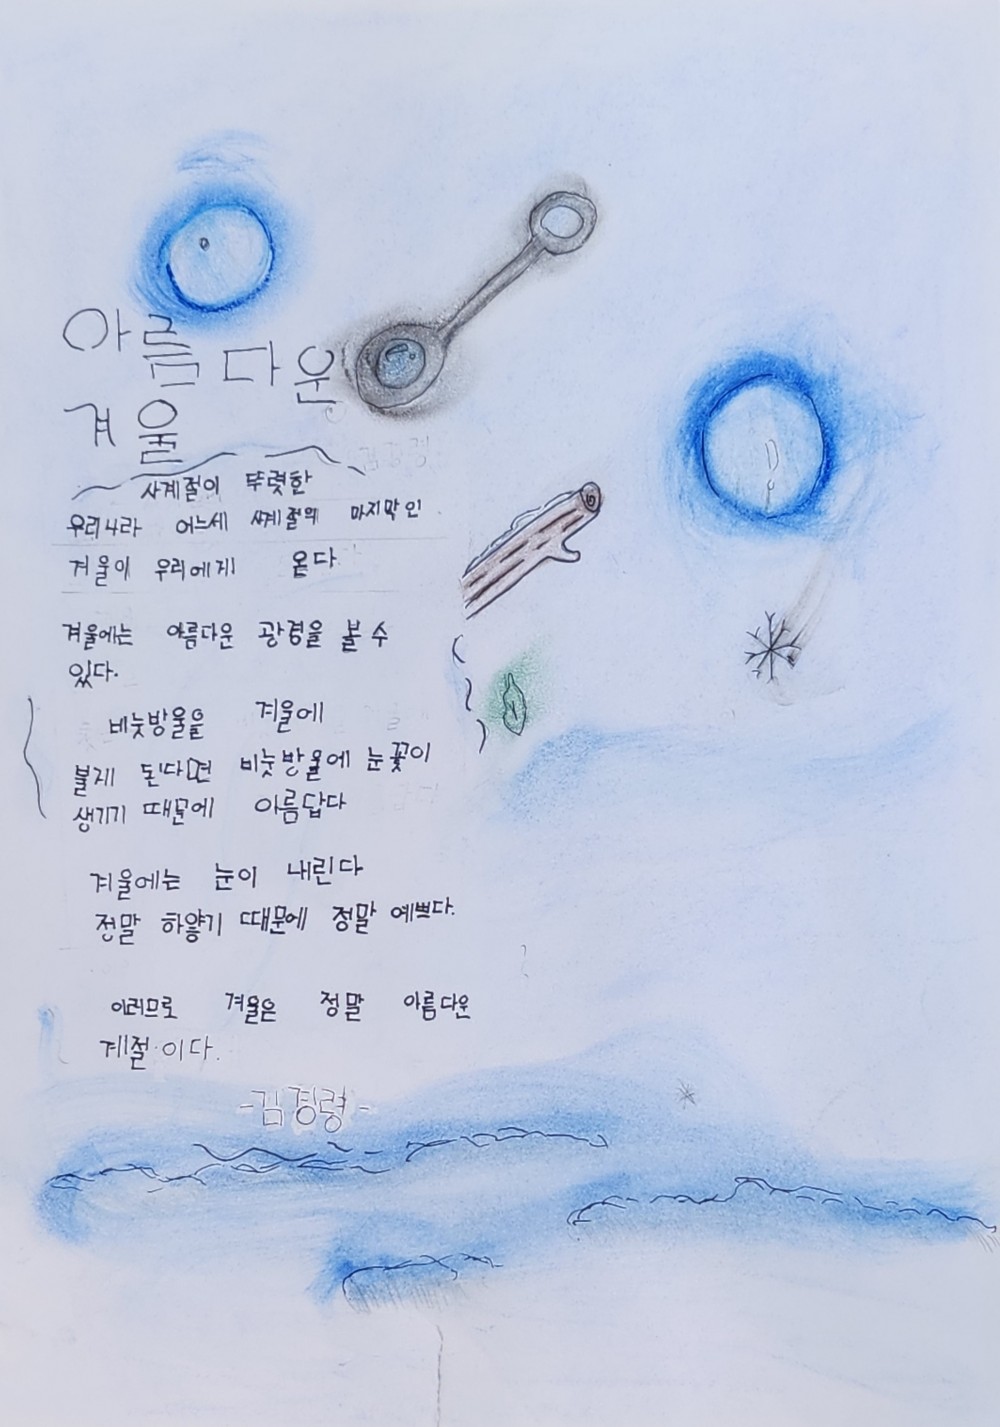 아름다운
겨울
사계절이 뚜렷한
우리나라 어느세 사계절의 마지막인
겨울이 우리에게 옫다
겨울에는 아름다운 광경을 볼 수
있다.
비눗방울을 겨울에
불게 된다면 비눗방울에 눈꽃이
생기기 때문에 아름답다
겨울에는 눈이 내린다
정말 하얗기 때문에 정말 예쁘다.
이러므로 겨울은 정말 아름다운
계절이다.
-김경령-